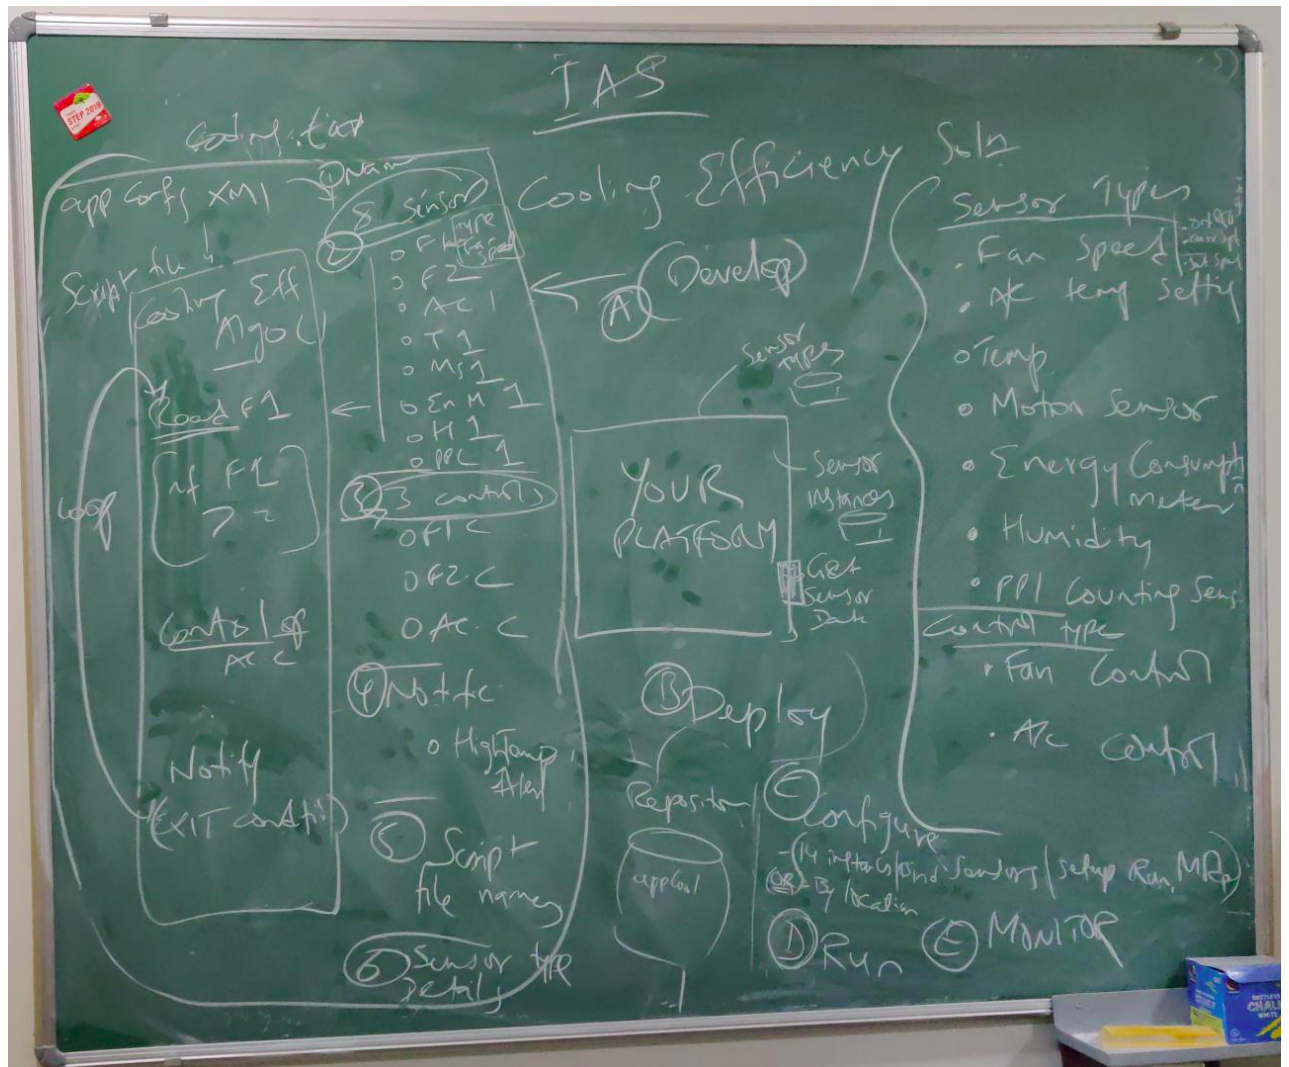 IAS
STEP 2019
Cooling.tar
app Config XML
① Name
Script file
Cooling Eff
Algo C
Read F1
if F1
? =
Loop
Control of
AC C
Notify
(EXIT condition)
② 8 Sensor
F1 type
Fan
Speed
F2
AC 1
T 1
MS1
EnM 1
H 1
PPC 1
③ 3 controls
F1C
F2.C
AC. C
④ Notific
HighTemp
Alert
⑤ Script
file names
⑥ Sensor type
Details
Cooling Efficiency
Ⓐ Develop
Sensor
types
YOUR
PLATFORM
Sensor
instances
Get
Sensor
Data
Ⓑ Deploy
Repository
appCool
Ⓒ Configure
- 14 instances/bind sensors/setup Run,
OR - By location
Ⓓ Run
Ⓔ MONITOR
Soln
Sensor Types
Fan Speed
A/C temp setting
Temp
Motion Sensor
Energy Consumptn
meter
Humidity
PPl Counting Sens
Control type
Fan Control
A/c control
CHALK
WHITE